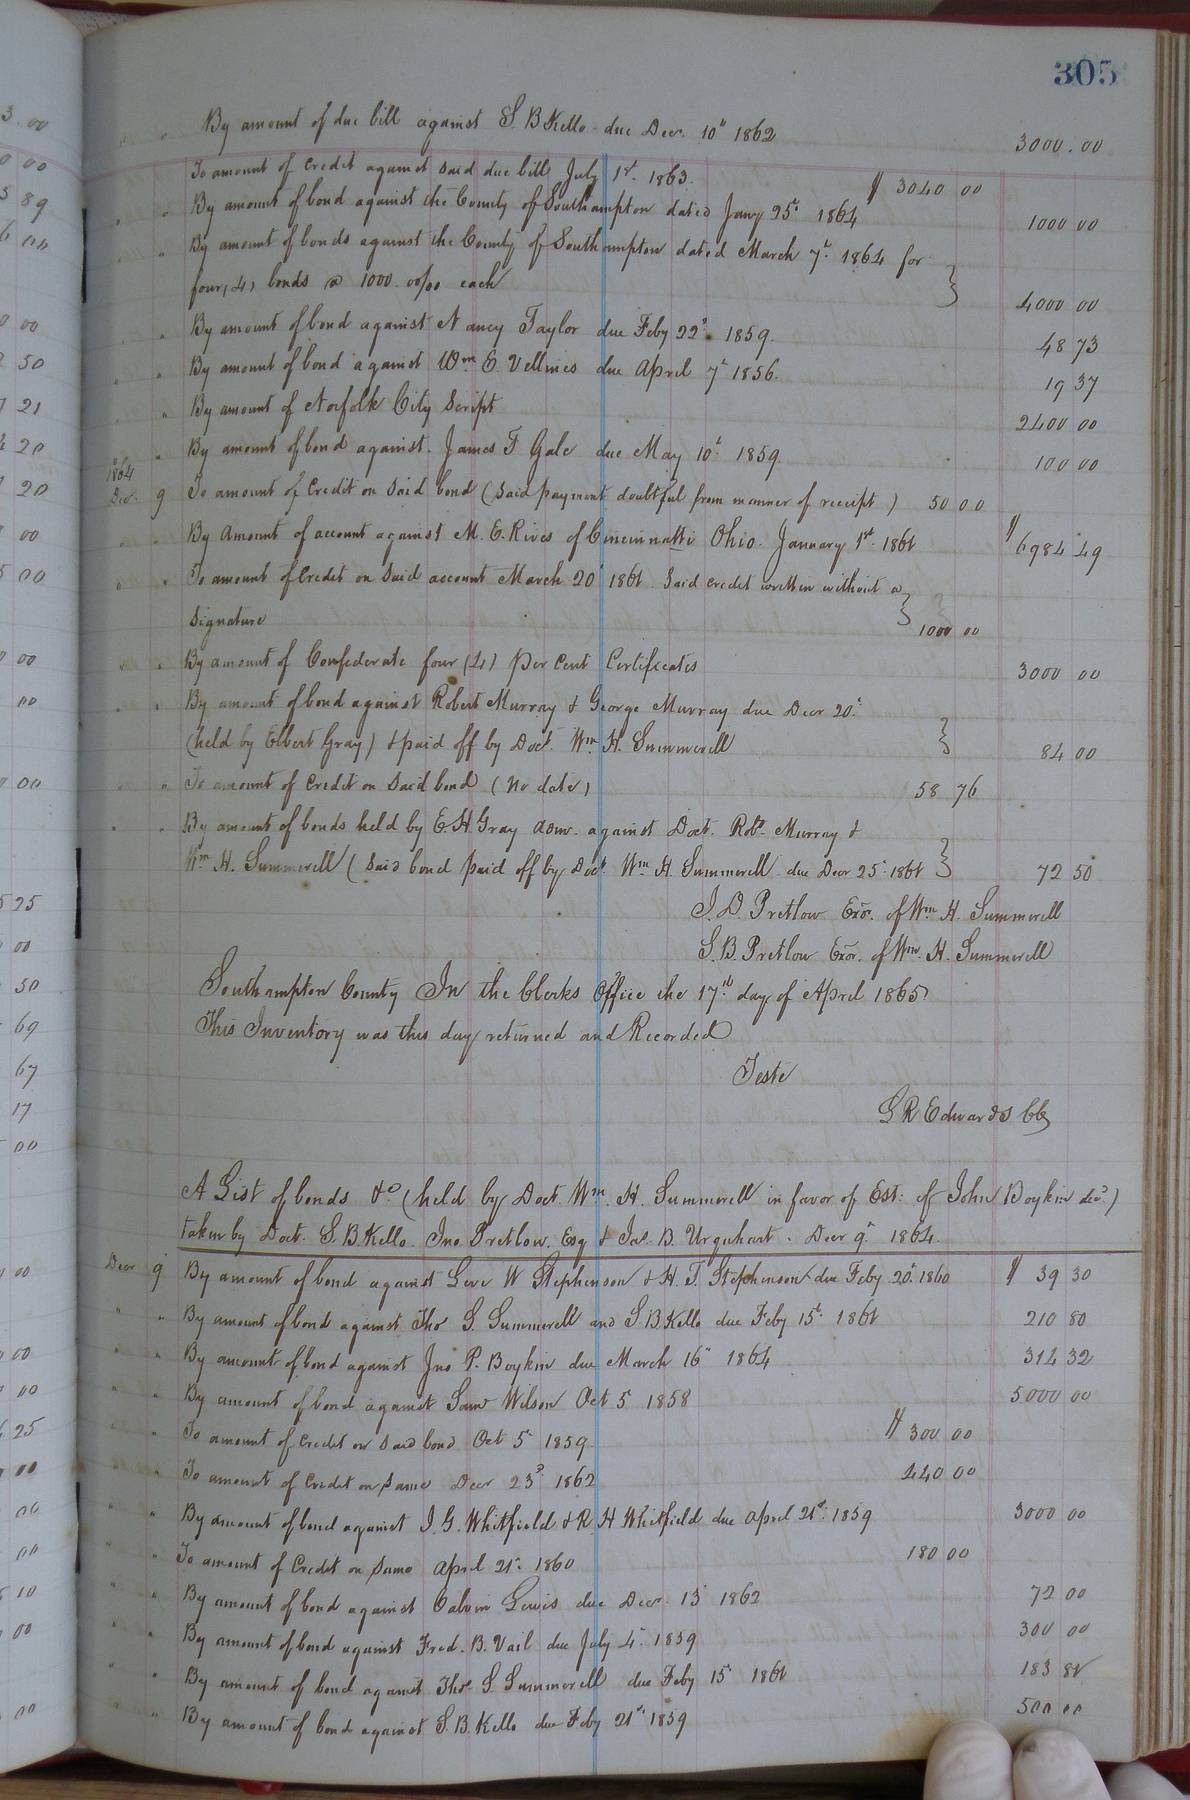 305
By amount of due bill against S. B Kello - due Decr. 10th 1862 3000.00
To amount of Credit against said due bill July 1st. 1863. $ 3040 00
" " By amount of bond against the County of Southampton dated Jany 25th 1864 1000 00
" " By amount of bonds against the County of Southampton dated March 7th 1864 for
four, (4) bonds @ 1000. 00/00 each } 4000 00
" By amount of bond against Nancy Taylor due Feby 22d. 1859. 48 73
" " By amount of bond against Wm E Vellines due April 7th 1856. 19 37
" By amount of Norfolk City Script 2400 00
" By amount of bond against. James T Gale due May 10th 1859 100 00
1864
Decr. 9 To amount of Credit on said bond (said payment doubtful from manner of receipt) 50 00
" " By Amount of account against M. E. Rives of Cincinnatti Ohio. January 1st. 1861 $ 6984 49
" " To amount of Credit on said account March 20th 1861. Said credit written without a
signature } 1000 00
" " By amount of Confederate four (4) per Cent Certificates 3000 00
" " By amount of bond against Robert Murray & George Murray due Decr 20th
(held by Elbert Gray) & paid off by Doct. Wm H. Summerell } 84 00
" " To amount of Credit on Said bond (No date) 58 76
" " By amount of bonds held by E. H. Gray adm. against Doct. Robt. Murray &
Wm H. Summerell (Said bond paid off by Doct Wm H Summerell due Decr 25th 1861 } 72 50
J. D. Pretlow Exor. of Wm H. Summerell
S. B. Pretlow Exor. of Wm. H. Summerell
Southampton County In the Clerks Office the 17th day of April 1865
This Inventory was this day returned and Recorded
Teste
L R Edwards CC
A List of bonds &c (held by Doct. Wm. H. Summerell in favor of Est: of John Boykin decd.)
taken by Doct. S. B. Kello. Jno. Pretlow. Esq & Jas. B. Urquhart. Decr 9th 1864.
Decr 9 By amount of bond against Levi W Stephenson & H. T. Stephenson due Feby 20th. 1860 $ 39 30
" " By amount of bond against Thos S. Summerell and S. B Kello due Feby 15th. 1861 210 80
" " By amount of bond against Jno P. Boykin due March 16th 1864 314 32
" " By amount of bond against Saml Wilson Oct 5 1858 5000 00
" " To amount of Credit on said bond Oct 5th 1859 $ 300 00
" To amount of Credit on Same Decr 23d. 1862 440 00
" " By amount of bond against J. G. Whitfield & R. H Whitfield due April 21st. 1859 3000 00
" " To amount of Credit on Same April 21st. 1860 180 00
" " By amount of bond against Calvin Lewis due Decr. 13th 1862 72 00
" " By amount of bond against Fred. B. Vail due July 4th. 1859 300 00
" " By amount of bond against Thos. S. Summerell due Feby 15th 1861 183 81
" " By amount of bond against S. B. Kello due Feby 21st 1859 500 00